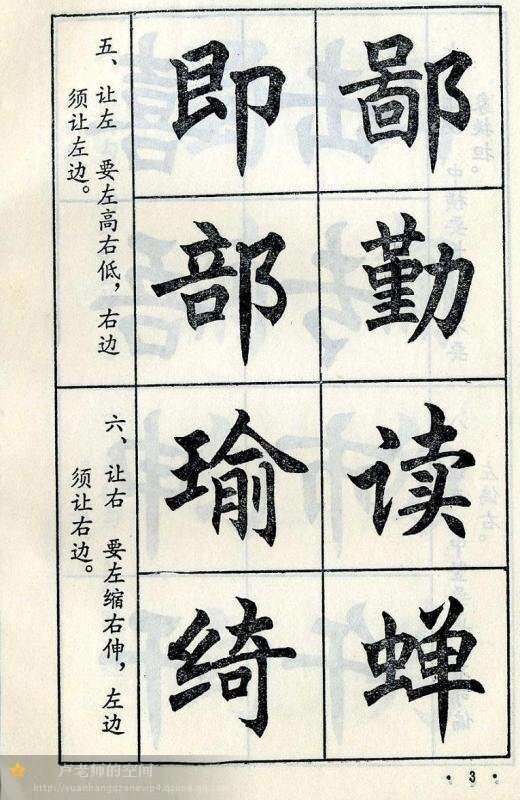 五、让左 要左高右低，右边
须让左边。
即 鄙
部 勤
六、让右 要左缩右伸，左边
须让右边。
瑜 读
绮 蝉
·3·
卢老师的空间